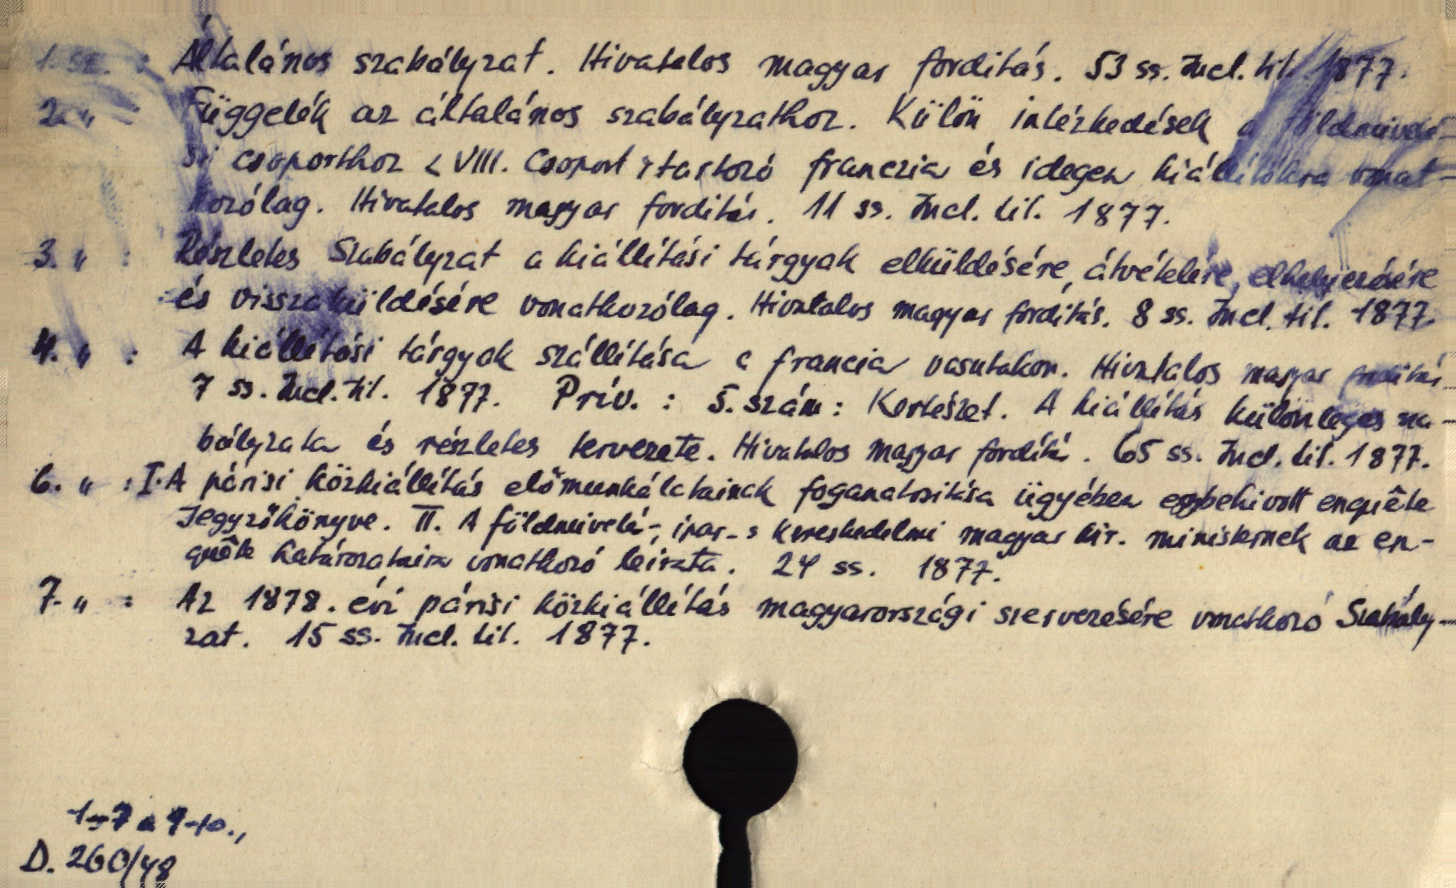 1. sz. : Általános szabályzat. Hivatalos magyar forditás. 53 ss. Incl. tit. 1877.
2. " : Függelék az általános szabályzathoz. Külön intézkedések a földmivelé-
si csoporthoz <VIII. Csoport> tartozó franczia és idegen kiállitókra vonat-
kozólag. Hivatalos magyar forditás. 11 ss. Incl. tit. 1877.
3. " : Részletes Szabályzat a kiállítási tárgyak elküldésére, átvételére, elhelyezésére
és visszaküldésére vonatkozólag. Hivatalos magyar forditás. 8 ss. Incl. tit. 1877.
4. " : A kiállítási tárgyak szállítása a francia vasutakon. Hivatalos magyar forditás.
7 ss. Incl. tit. 1877. Priv. : 5. szám : Kertészet. A kiállítás különleges sza-
bályzata és részletes tervezete. Hivatalos magyar fordítás. 65 ss. Incl. tit. 1877.
6. " : I. A párisi közkiállítás előmunkálatainak foganatositása ügyében egybehivott enquête
Jegyzőkönyve. II. A földmivelé-, ipar- s kereskedelmi magyar kir. ministernek az en-
quête határozataira vonatkozó leirata. 24 ss. 1877.
7. " : Az 1878. évi párisi közkiállítás magyarországi szervezésére vonatkozó Szabály-
zat. 15 ss. Incl. tit. 1877.
D. 260/48